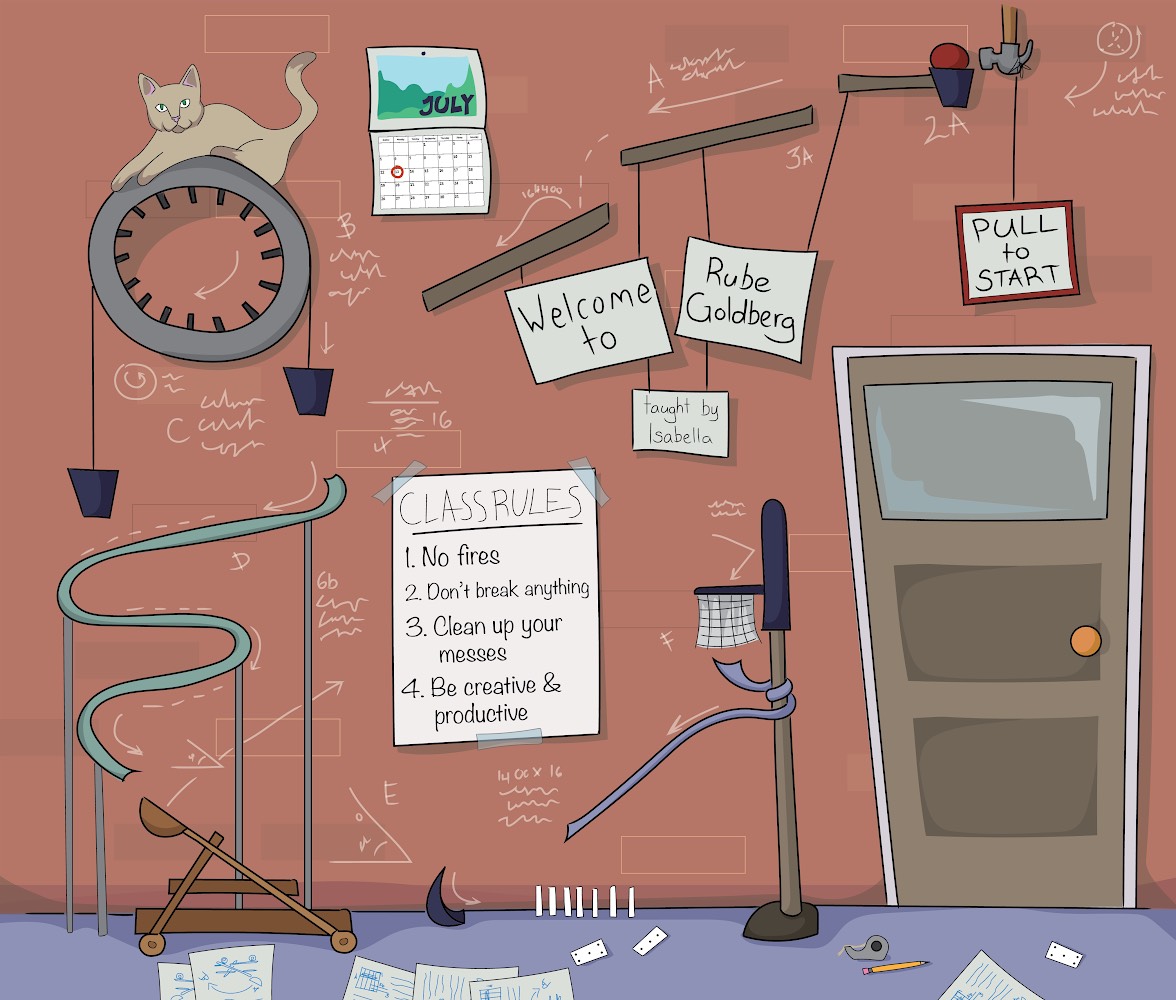 JULY
A
2A
3A
164400
B
PULL
to
START
Welcome
to
Rube
Goldberg
taught by
Isabella
C
16
4
CLASS RULES
1. No fires
2. Don't break anything
3. Clean up your
messes
4. Be creative &
productive
D
6b
F
E